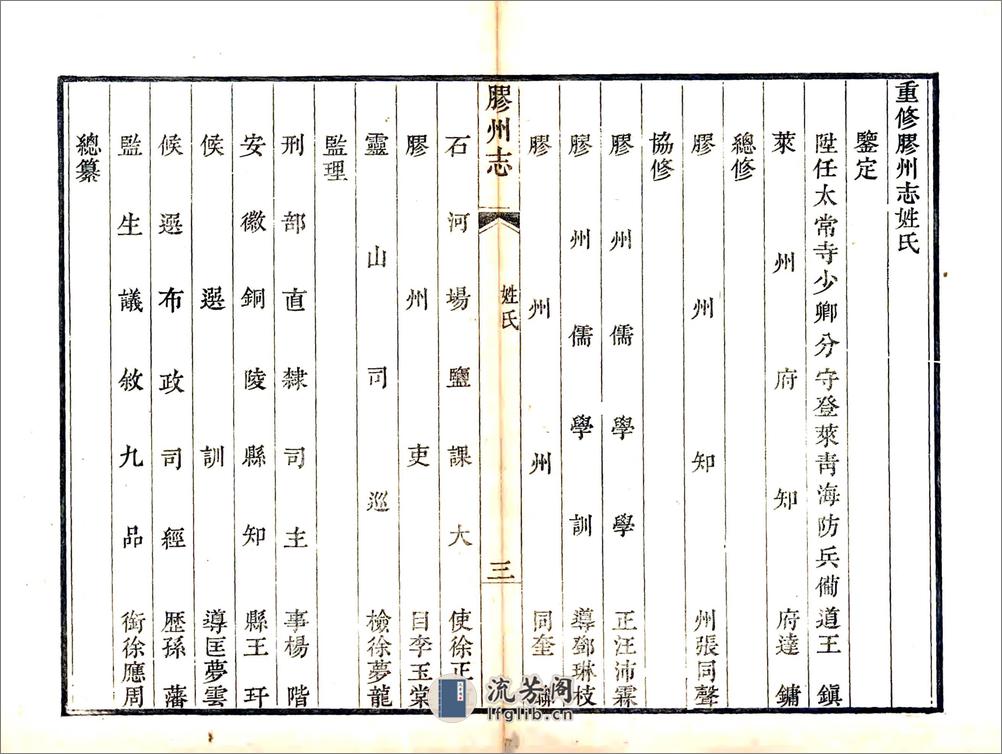 重修膠州志姓氏
鑒定
陞任太常寺少卿分守登萊青海防兵備道王鎭
萊州府知府達鏞
總修
膠州知州張同聲
協修
膠州儒學學正汪沛霖
膠州儒學訓導鄧琳枝
膠州州同奎
膠州志
姓氏
三
石河場鹽課大使徐正
膠州吏目李玉棠
靈山司巡檢徐夢龍
監理
刑部直隸司主事楊階
安徽銅陵縣知縣王玕
候選訓導匡夢雲
候選布政司經歷孫藩
監生議敘九品銜徐應周
總纂
流芳阁
lfglib.cn